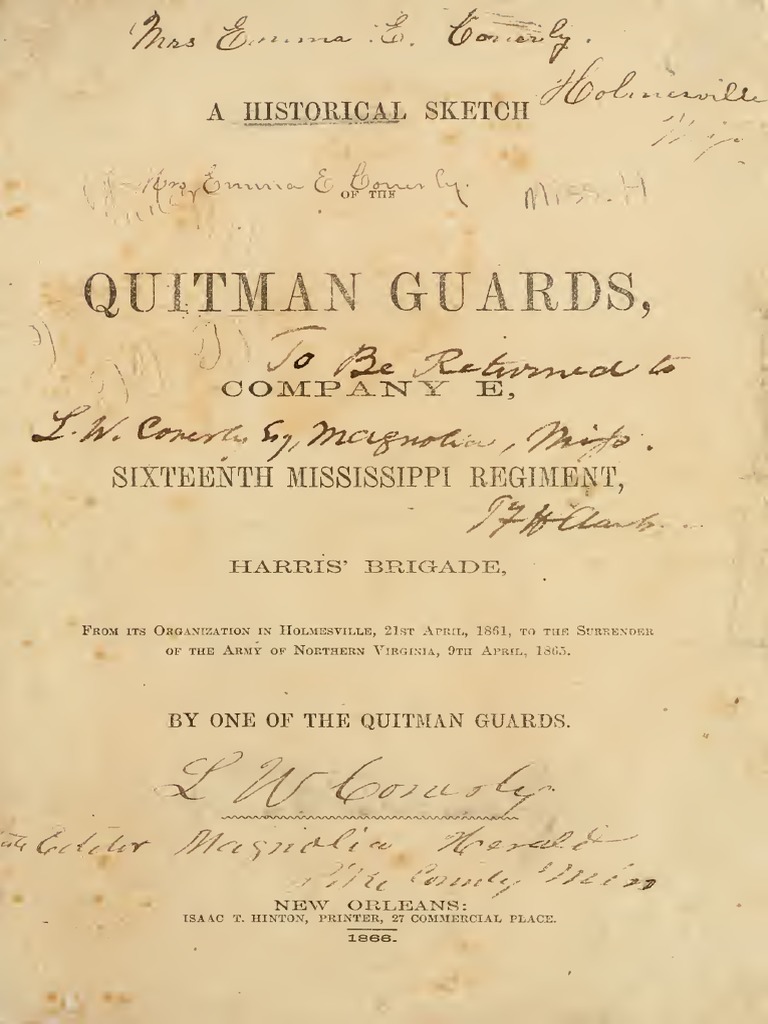 Mrs Emma E. Conerly.
Holmesville
A HISTORICAL SKETCH
Mrs Emma E Conerly.
OF THE
Miss. H
QUITMAN GUARDS,
To Be Returned to
COMPANY E,
L. W. Conerly Esq, Magnolia, Miss.
SIXTEENTH MISSISSIPPI REGIMENT,
HARRIS' BRIGADE,
FROM ITS ORGANIZATION IN HOLMESVILLE, 21ST APRIL, 1861, TO THE SURRENDER
OF THE ARMY OF NORTHERN VIRGINIA, 9TH APRIL, 1865.
BY ONE OF THE QUITMAN GUARDS.
L W Conerly
Editor Magnolia Herald
Pike County Miss
NEW ORLEANS:
ISAAC T. HINTON, PRINTER, 27 COMMERCIAL PLACE.
1866.